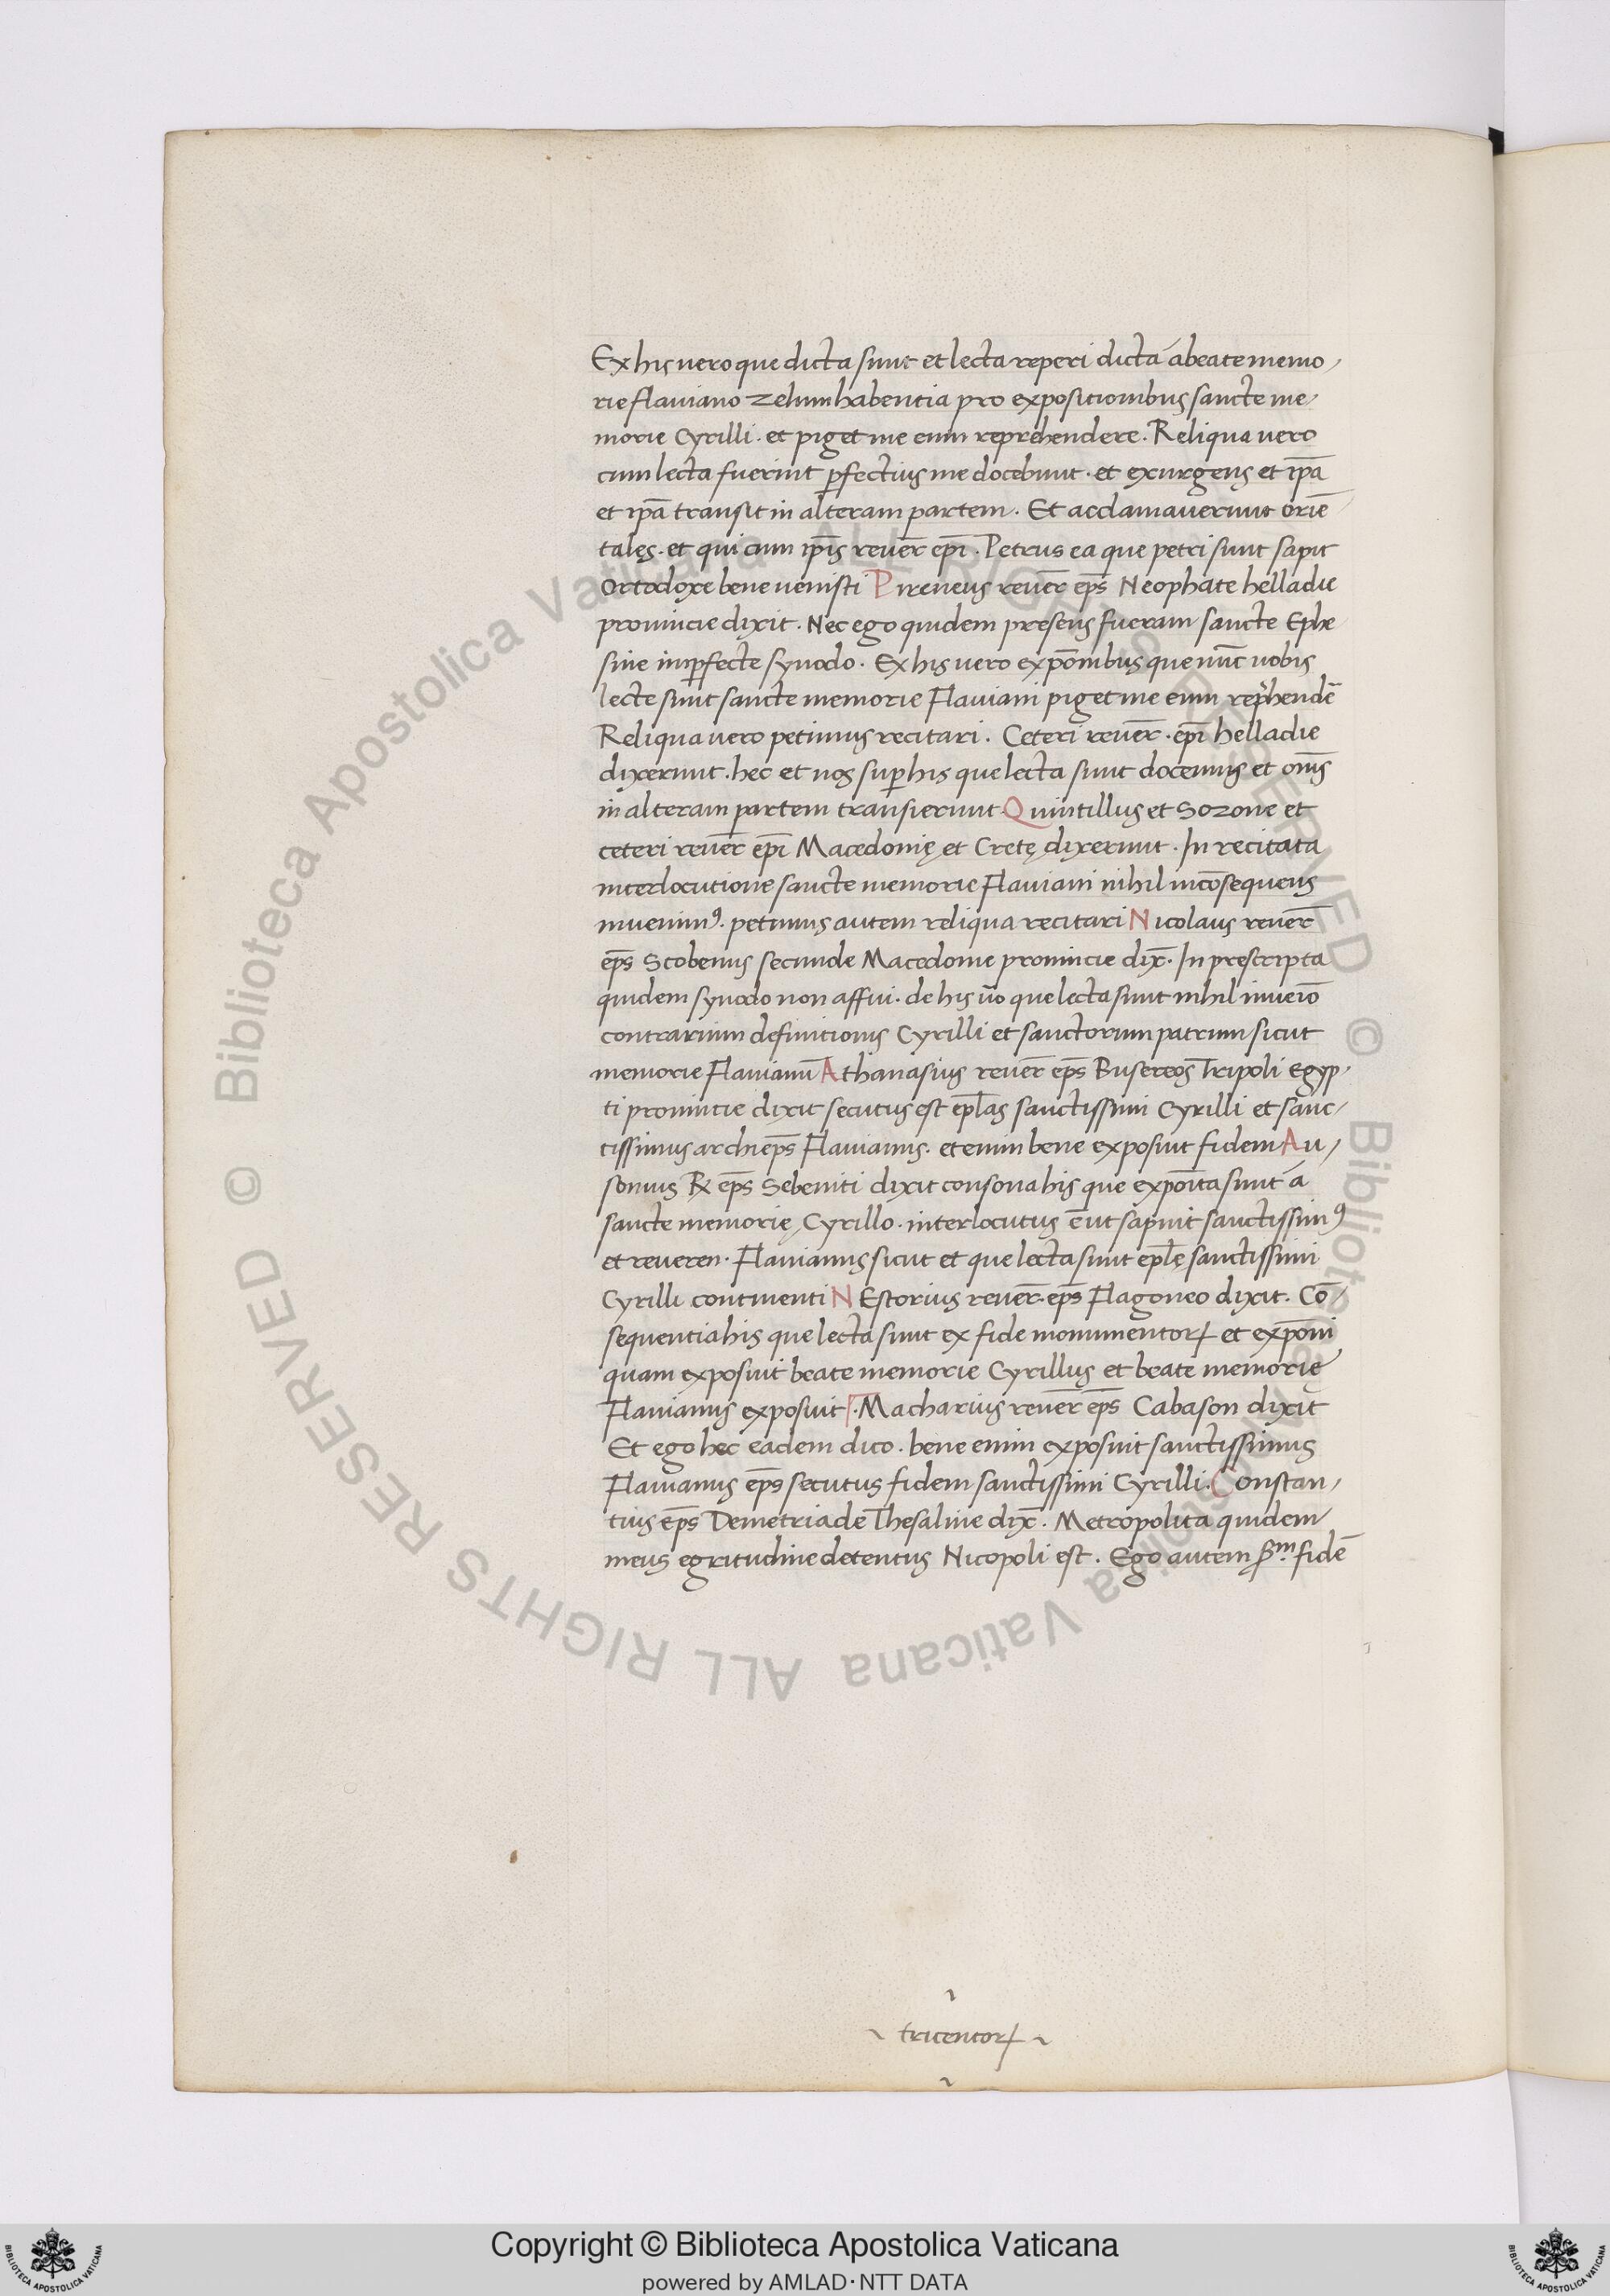 Ex his uero que dicta sunt et lecta reperi dicta á beate memo/
rie flauiano zelum habentia pro expositionibus sancte me/
morie Cyrilli. et piget me eum reprehendere. Reliqua uero
cum lecta fuerint ꝑfectius me docebunt. et exurgens et ip̄a
et ip̄a transit in alteram partem. Et acclamauerunt oriē
tales. et qui cum ip̄is reuer̄ ep̄i. Petrus ea que petri sunt sapit
Ortodoxe bene uenisti Pireneus reuer̄ ep̄s Neophate helladie
prouincie dixit. Nec ego quidem presens fueram sancte Ephe
sine imꝑfecte synodo. Ex his uero expōnibus que nūc uobis
lecte sunt sancte memorie Flauiani piget me eum rep̄hendē
Reliqua uero petimus recitari. Ceteri reuer̄. ep̄i helladie
dixerunt. hec et nos suꝑ his que lecta sunt docemus et om̄s
in alteram partem transierunt. Quintillus et Sozone et
ceteri reuer̄ ep̄i Macedonię et Cretę dixerunt. In recitata
interlocutione sancte memorie Flauiani nihil incōsequens
inuenimꝰ. petimus autem reliqua recitari Nicolaus reuer̄
ep̄s Scobenus secunde Macedonie prouincie dix̄. In prescripta
quidem synodo non affui. de his ūo que lecta sunt nihil inueiō
contrarium definitionis Cyrilli et sanctorum patrum sicut
memorie Flauianū Athanasius reuer̄ ep̄s Busereos Tripoli Egyp/
ti prouincie dixit secutus est ep̄las sanctissimi Cyrilli et sanc/
tissimus archiep̄s Flauianus. etenim bene exposuit fidem Au/
sonius R̄ ep̄s Sebeniti dixit consona his que expoīta sunt á
sancte memorię Cyrillo. interlocutus ē ut sapuit sanctissimꝰ
et reueren. Flauianus sicut et que lecta sunt ep̄lę sanctissimi
Cyrilli continenti NEstorius reuer̄. ep̄s Flagoneo dixit. Cō/
sequentia his que lecta sunt ex fide monumentorꝝ et expōni
quam exposuit beate memorie Cyrillus et beate memorię
Flauianus exposuit. Macharius reuer̄ ep̄s Cabason dixit
Et ego hec eadem dico. bene enim exposuit sanctissimus
Flauianus ep̄s secutus fidem sanctissimi Cyrilli. Constan/
tius ep̄s Demetriade Thesaline dix̄. Metropolita quidem
meus egritudine detentus Nicopoli est. Ego autem fidē
tricentorꝝ
© Biblioteca Apostolica Vaticana ALL RIGHTS RESERVED © Biblioteca Apostolica Vaticana ALL RIGHTS RESERVED
Copyright © Biblioteca Apostolica Vaticana
powered by AMLAD·NTT DATA
BIBLIOTECA APOSTOLICA VATICANA
BIBLIOTECA APOSTOLICA VATICANA